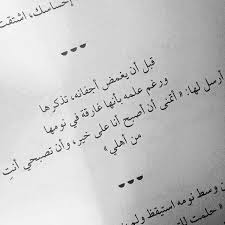 إحساسك، اشتقت
قبل أن يغمض أجفانه، تذكرها
ورغم علمه بأنها غارقة في نومها
أرسل لها: «أتمنى أن أصبح أنا على خير، وأن تصبحي أنتِ
من أهلي»
ن وسط نومه استيقظ ولم
« حلمت